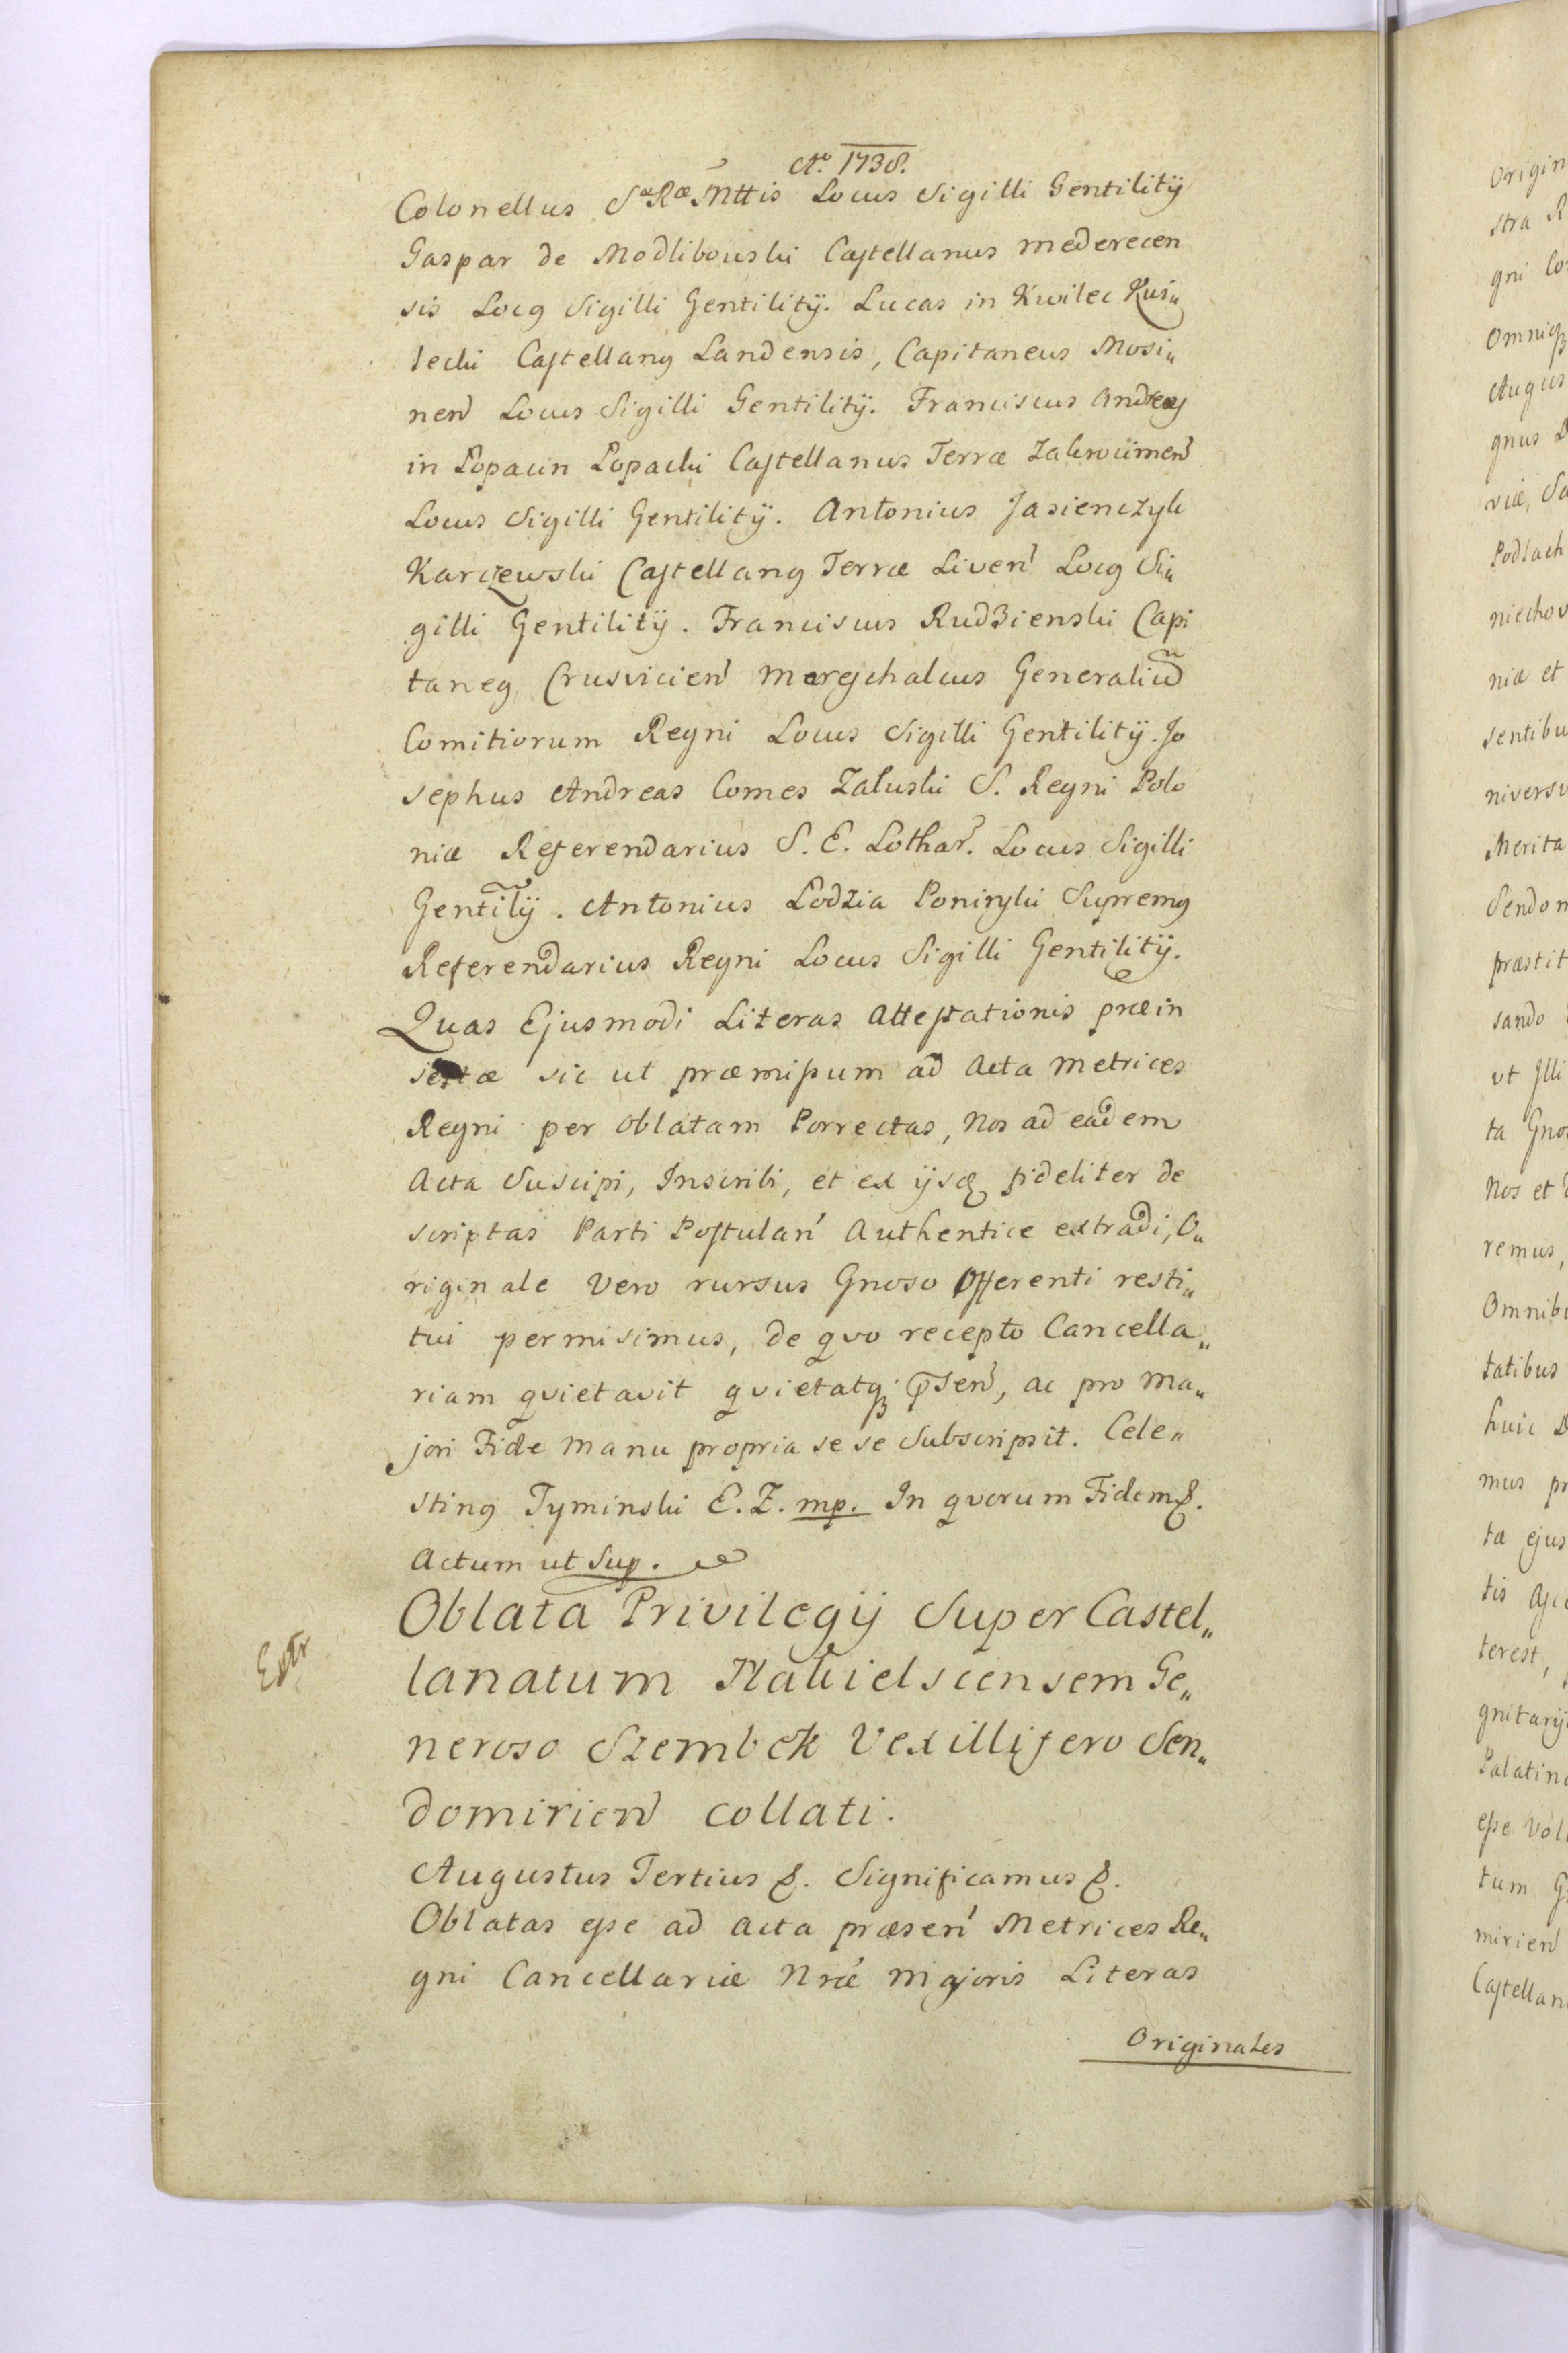 Ao. 1738.
Colonellus Sæ Ræ Mttis Locus Sigilli Gentilitÿ
Gaspar de Modlibowski Castellanus mederecen
sis Locꝰ Sigilli Gentilitÿ. Lucas in Kwilec Kwi„
lecki Castellanꝰ Landensis, Capitaneus Mosi„
nen̄ Locus Sigilli Gentilitÿ. Franciscus Andreas
in Łopacin Łopacki Castellanus Terræ Zakrocimen̄
Locus Sigilli Gentilitÿ. Antonius Jasienczyk
Karczewski Castellanꝰ Terræ Liven̄ Locꝰ Si„
gilli Gentilitÿ. Franciscus Rudzienski Capi
taneꝰ Crusvicien̄ Mareschalcus Generaliũ
Comitiorum Regni Locus Sigilli Gentilitÿ. Jo
sephus Andreas Comes Zaluski S. Regni Polo
niæ Referendarius S. E. Lothar. Locus Sigilli
Gentilÿ. Antonius Lodzia Poninski Supremꝰ
Referendarius Regni Locus Sigilli Gentilitÿ.
Quas Ejusmodi Literas Attestationis præin
sertæ sic ut præmissum ad Acta Metrices
Regni per Oblatam Porrectas, Nos ad eadem
Acta Suscipi, Inscribi, et ex ijsqꝫ fideliter de
scriptas Parti Postulan̄ Authentice extradi, O„
riginale Vero rursus Gnoso Offerenti resti„
tui permisimus, de qvo recepto Cancella„
riam qvietavit qvietatqꝫ p̄sen̄, ac pro Ma„
jori Fide Manu propria se se Subscripsit. Cele„
stinꝰ Tyminski E. Z. mp. In qvorum Fidem &.
Actum ut Sup.
Extr.
Oblata Privilegij Super Castel„
lanatum Nakielscensem Ge„
neroso Szembek Vexillifero Sen„
domirien̄ collati.
Augustus Tertius &. Significamus &.
Oblatas esse ad Acta præsen̄ Metrices Re„
gni Cancellariæ Nræ Majoris Literas
Originales
Origin
stra R
gni Co
Omniqꝫ
Augus
gnus D
viæ, Sa
Podlach
niechov
niæ et
sentibu
niversu
Merita
Sendom
præstit
sando
ut Illi
ta Gnos
Nos et
remus,
Omnibu
tatibus
huic D
mus pr
tæ ejus
tis
terest,
gnitarij
Palatino
esse vol
tum G
mirien̄
Castellan